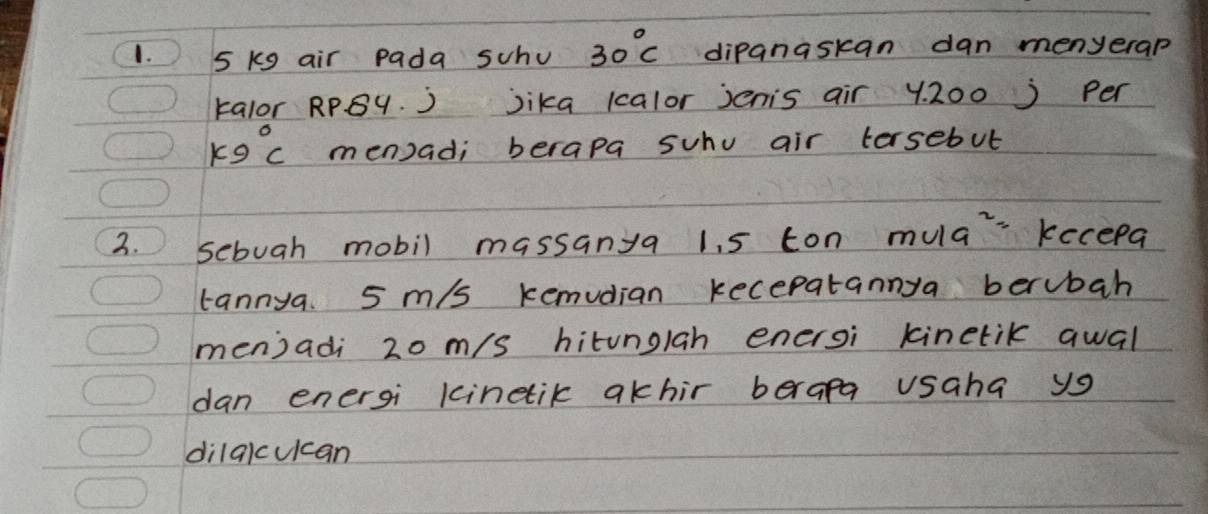 1. 5 kg air pada suhu 30°C dipanaskan dan menyerap
kalor RP.84. J jika kalor jenis air 4.200 J per
kg°C menjadi berapa suhu air tersebut
2. Sebuah mobil massanya 1,5 ton mula²= kecepa
tannya. 5 m/s kemudian kecepatannya berubah
menjadi 20 m/s hitunglah energi kinetik awal
dan energi kinetik akhir berapa usaha yg
dilakukan